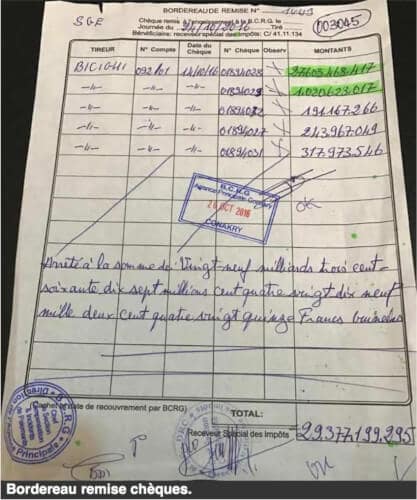 BORDEREAU DE REMISE N° 1649
SGE
Chèque remis à l'encaissement à la B.C.R.G. le
Journée du 24/10/2016 Tiré (003045)
Bénéficiaire: receveur spécial des Impôts: C/ 41.11.134
TIREUR N° Compte Date du Chèque N° Chèque Observ MONTANTS
BICIGUI 14/10/16 01894028 27603.468.417
-//- -//- -//- 01894029 1.020.623.017
-//- -//- -//- 191.167.266
-//- -//- -//- 01894027 243.967.049
-//- -//- -//- 01894031 317.973.546
B.C.R.G
Agence Principale Conakry
20 OCT 2016
CONAKRY
OK
Arrêté à la somme de Vingt-neuf milliards trois cent-
soixante dix sept millions cent quatre vingt dix neuf
mille deux cent quatre vingt quinze Francs Guinéens
(Cachet et date de recouvrement par BCRG)
TOTAL: 29.377.199.295
Receveur Spécial des Impôts
B.C.R.G
Principale
Bordereau remise chèques.